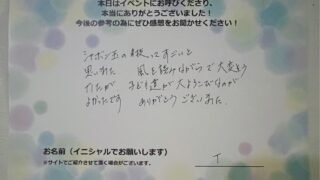 本日はイベントにお呼びくださり、
本当にありがとうございました！
今後の参考の為にぜひ感想をお聞かせください！
シャボン玉の技ってすごいと
思いました 風を読みながらで大変そう
でしたが 子ども達が大よろこびなのが
よかったです ありがとうございました。
お名前（イニシャルでお願いします）
※サイトでご紹介させて頂く場合がございます。
T